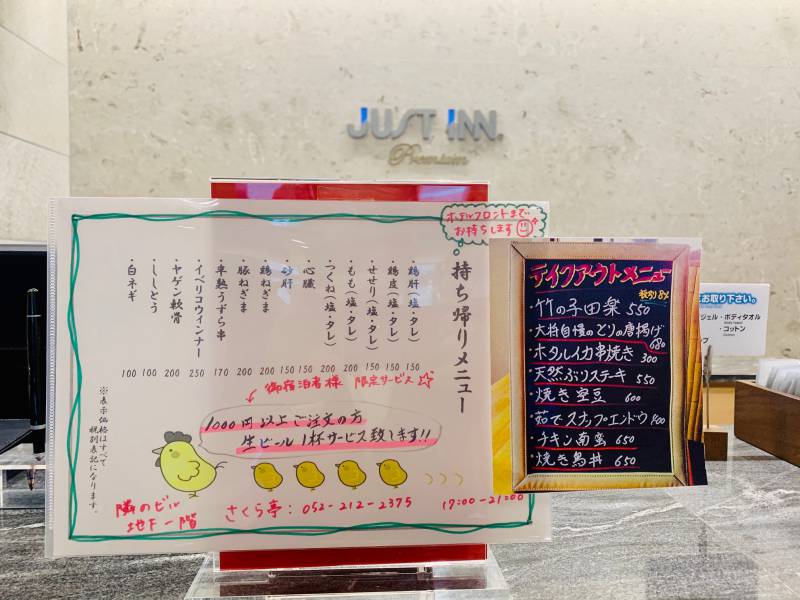 JUST INN
Premium
ホテルフロントまで
お持ちします
持ち帰りメニュー
・鶏肝(塩・タレ) 150
・鶏皮(塩・タレ) 150
・せせり(塩・タレ) 150
・もも(塩・タレ) 200
・つくね(塩・タレ) 200
・心臓 150
・砂肝 150
・鶏ねぎま 200
・豚ねぎま 200
・半熟うずら串 170
・イベリコウインナー 250
・ヤゲン軟骨 200
・ししとう 100
・白ネギ 100
※表示価格はすべて
税別表記になります。
御宿泊者様 限定サービス
1000円以上ご注文の方
生ビール1杯サービス致します!!
隣のビル
地下一階
さくら亭:052-212-2375
17:00-21:00
テイクアウトメニュー
税別8%
・竹の子田楽 550
・大将自慢のとりの唐揚げ 680
・ホタルイカ串焼き 300
・天然ぶりステキ 550
・焼き空豆 600
・茹でスナップエンドウ 400
・チキン南蛮 650
・焼き鳥丼 650
お取り下さい。
ジェル・ボディタオル
・コットン